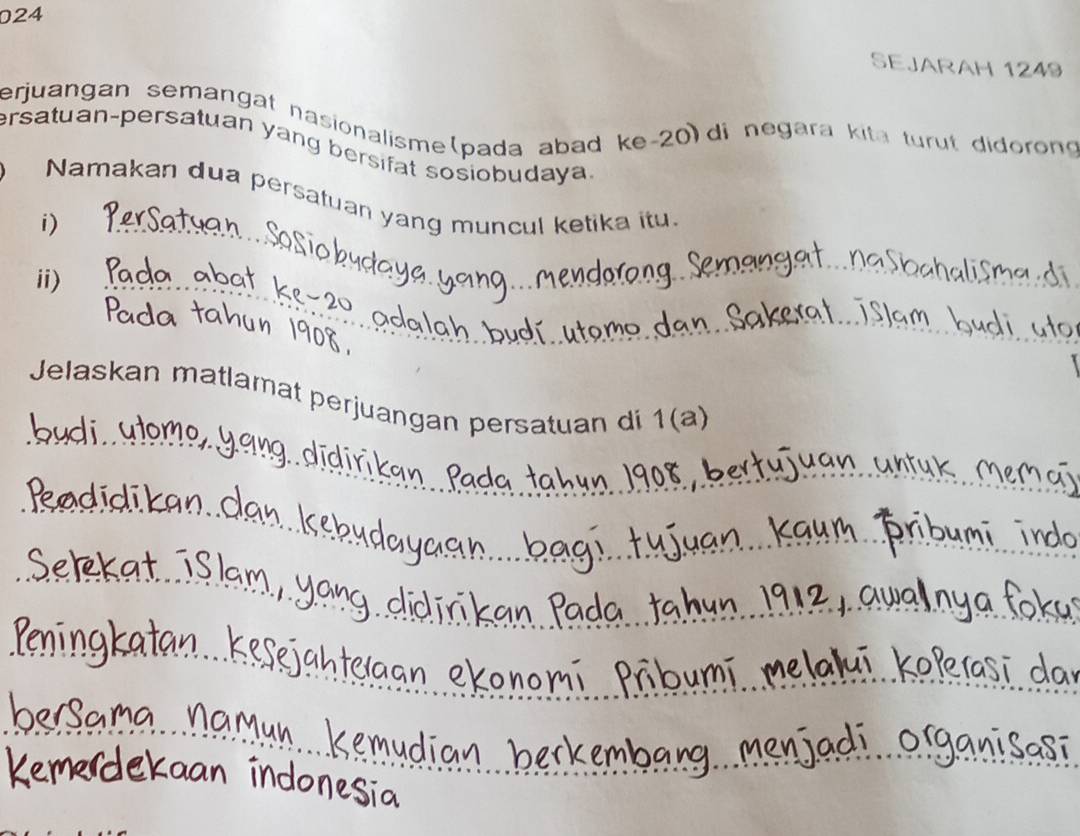 024
SEJARAH 1249
erjuangan semangat nasionalisme (pada abad ke-20) di negara kita turut didorong
ersatuan-persatuan yang bersifat sosiobudaya.
) Namakan dua persatuan yang muncul ketika itu.
i) Persatuan Sosiobudaya yang mendorong Semangat nasbahalisma di
ii) Pada abat ke-20 adalah budi utomo dan Sakerat islam budi uto
Pada tahun 1908.
[
Jelaskan matlamat perjuangan persatuan di 1(a)
budi utomo, yang didirikan Pada tahun 1908, bertujuan untuk memaj
Peadidikan dan kebudayaan bagi tujuan kaum pribumi indo
Serekat islam, yang didirikan Pada tahun 1912, awalnya fokus
Peningkatan kesejahteraan ekonomi Pribumi melalui koperasi dan
bersama namun kemudian berkembang menjadi organisasi
kemerdekaan indonesia